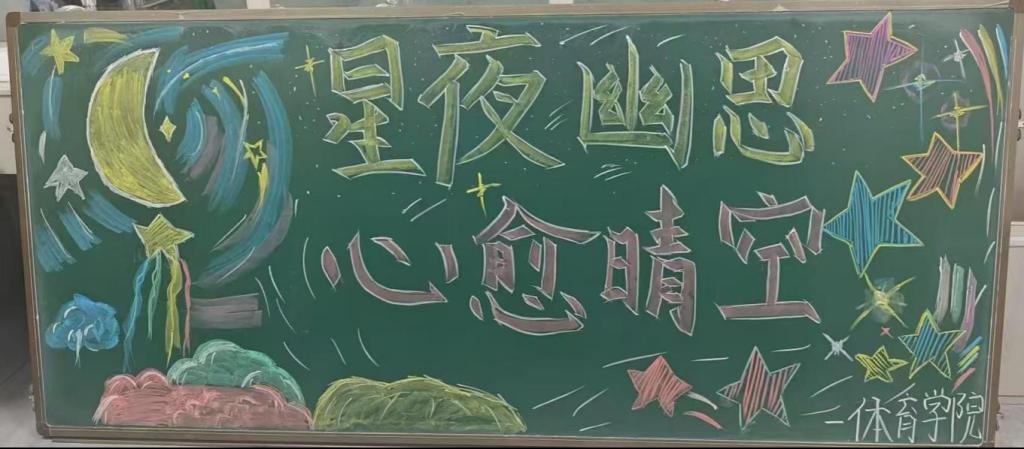 星夜幽思
心愈晴空
—体育学院